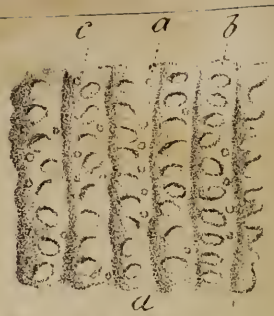 c a b
a